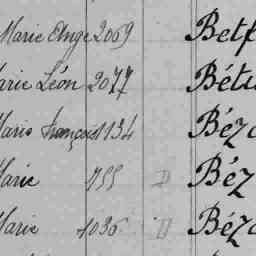 Marie Ange 2069 Betf
arie Léon 2077 Bétu
Marie François 1134 Béz
Marie 755 D Béz
Marie 1036 D Béz